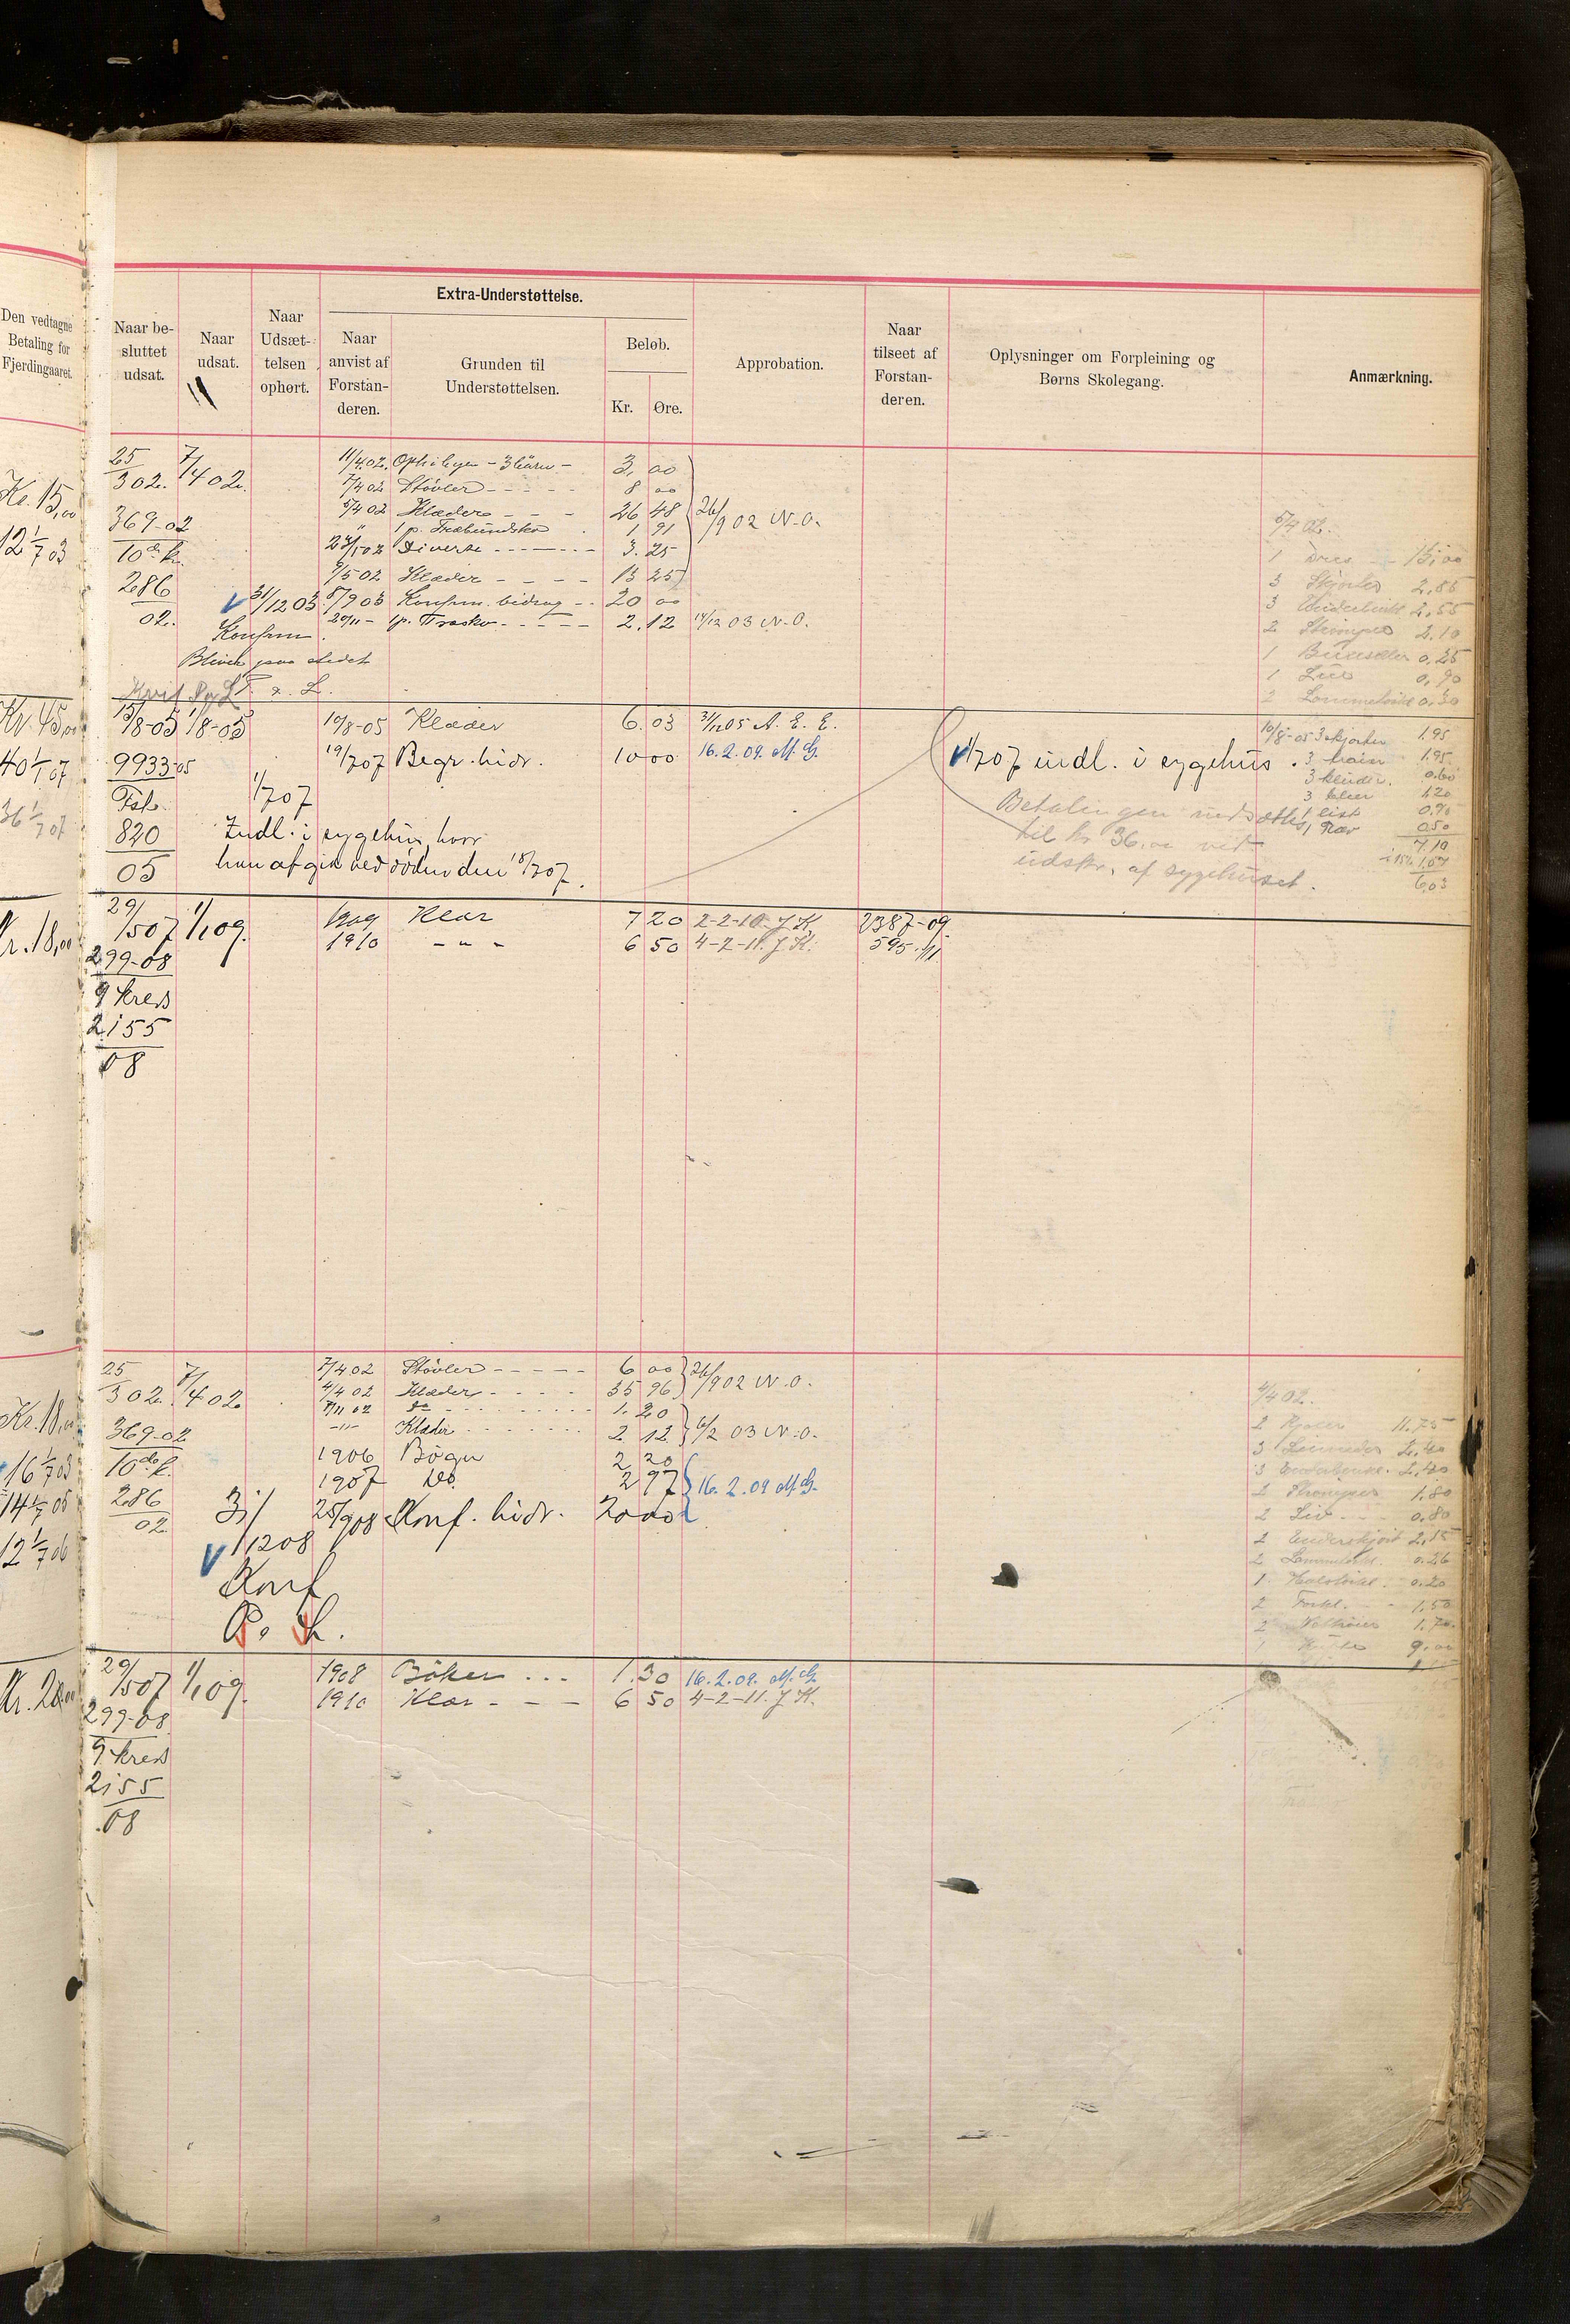 Den vedtagne
Betaling for
Fjerdingaaret.
Naar be-
sluttet
udsat.
Naar
udsat.
Naar
Udsæt-
telsen
ophørt.
Extra-Understøttelse.
Naar
anvist af
Forstan-
deren.
Grunden til
Understøttelsen.
Beløb.
Kr.
Øre.
Approbation.
Naar
tilseet af
Forstan-
deren.
Oplysninger om Forpleining og
Børns Skolegang.
Anmærkning.
Kr. 15,00
12 1/7 03
25/3 02. 7/4 02.
369-02
10de k.
286
02.
11/4 02. 3. 00
7/4 02 Støvler - - - - 8 00
5/4 02 Klæder - - - 26 48 26/9 02 N.O.
" 1 p. 1 91
Diverse - - - - 3. 25
9/5 02 Klæder - - - - 13 25
31/12 03 5/9 03 Konfirm. bidrag - - 20 00
20/11 - 1 p. Træsko - - - - 2. 12 14/12 03 N.O.
Konfirm.
Bliver paa stedet
5/4 02.
1 Dres 15,00
3 Skjorter 2.85
3 2,55
2 Strømper 2.10
1 0,25
1 Lue 0,90
2 0,30
Kr. 45,00
40 1/1 07
36 1/7 07
15/8-05 1/8-05
9933-05
Fsk.
820
05
10/8-05 Klæder 6. 03 31/12 05 A. E. E.
19/7 07 Begr. bidr. 10 00 16. 2. 09. M. G.
1/7 07
Indl. i sygehus, hvor
han afgik ved døden den 18/7 07.
1/7 07 indl. i sygehus.
Betalingen nedsættes
til kr 36.00 ved
udskr. af sygehuset.
10/8-05 3 skjorter 1.95
3 1.95
3 0.60
3 1.20
1 0.90
1 0.50
7.10
1.07
6.03
Kr. 18,00
29/5 07 1/1 09.
299-08
9 kreds
2155
08
1909 Klær 7 20 2-2-10. J. K. 2387-09.
1910 - " - 6 50 4-2-11. J. K. 595-11
Kr. 18,00
16 1/7 03
14 1/7 05
12 1/7 06
25/3 02. 7/4 02
369-02
10de k.
286
02.
7/4 02 Støvler - - - - - 6 00 26/9 02 N.O.
4/4 02 Klæder - - - - 35 96
7/11 02 do - - - - 1. 20
- " - Klæder - - - - 2 12 6/2 03 N.O.
1906 Bøger 2 20
1907 Do. 2 97 16. 2. 09 M. G.
25/9 08 Konf. bidr. 20 00
31/12 08
Konf.
P. L.
4/4 02.
2 Kjoler 11.75
3 2,40
3 2,40
2 Strømper 1.80
2 Liv - - 0.80
2 Underskjört 2,15
2 0.26
1 0.20
2 Forkl. - - 1,50
2 1.70
1 9.00
Kr. 20,00
29/5 07 1/1 09.
299-08
9 kreds
2155
08
1908 Bøker - - - 1. 30 16. 2. 09. M. G.
1910 Klær - - - 6 50 4-2-11. J. K.